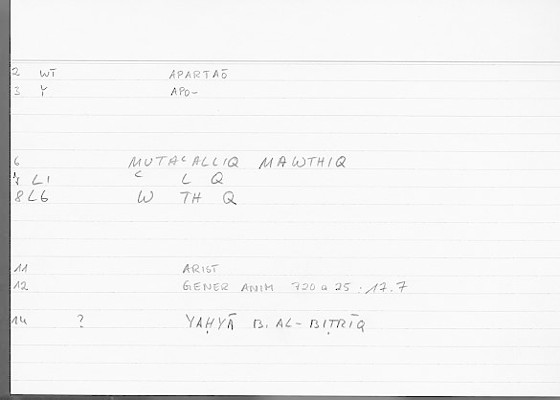 2 WT APARTAŌ
3 Y APO-
6 MUTAᶜALLIQ MAWTHIQ
7 L1 ᶜ L Q
8 L6 W TH Q
11 ARIST
12 GENER ANIM 720 a 25 : 17.7
14 ? YAḤYĀ B. AL-BIṬRĪQ